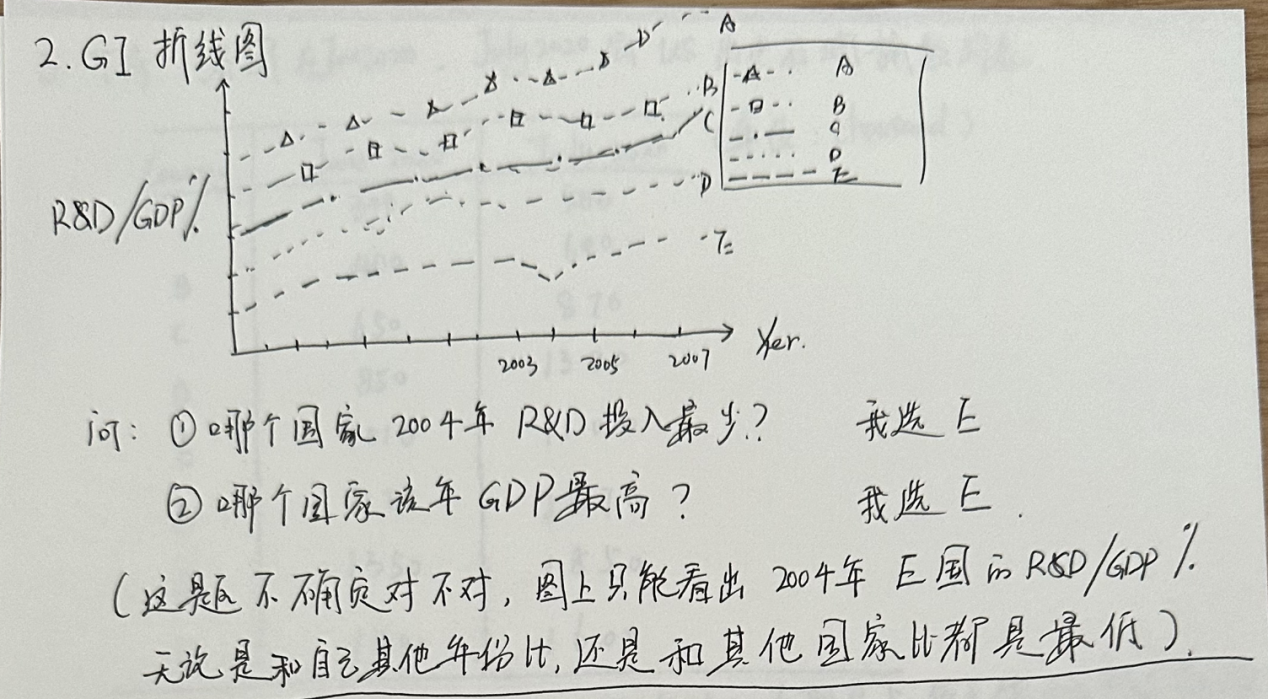 2. GI 折线图
A
B
C
D
E
A
B
C
D
E
R&D/GDP%
2003 2005 2007 Yer.
问: ① 哪个国家 2004年 R&D 投入最少? 我选 E
② 哪个国家该年 GDP 最高? 我选 E.
(这题不确定对不对, 图上只能看出 2004年 E国的 R&D/GDP %
无论是和自己其他年份比, 还是和其他国家比都是最低).